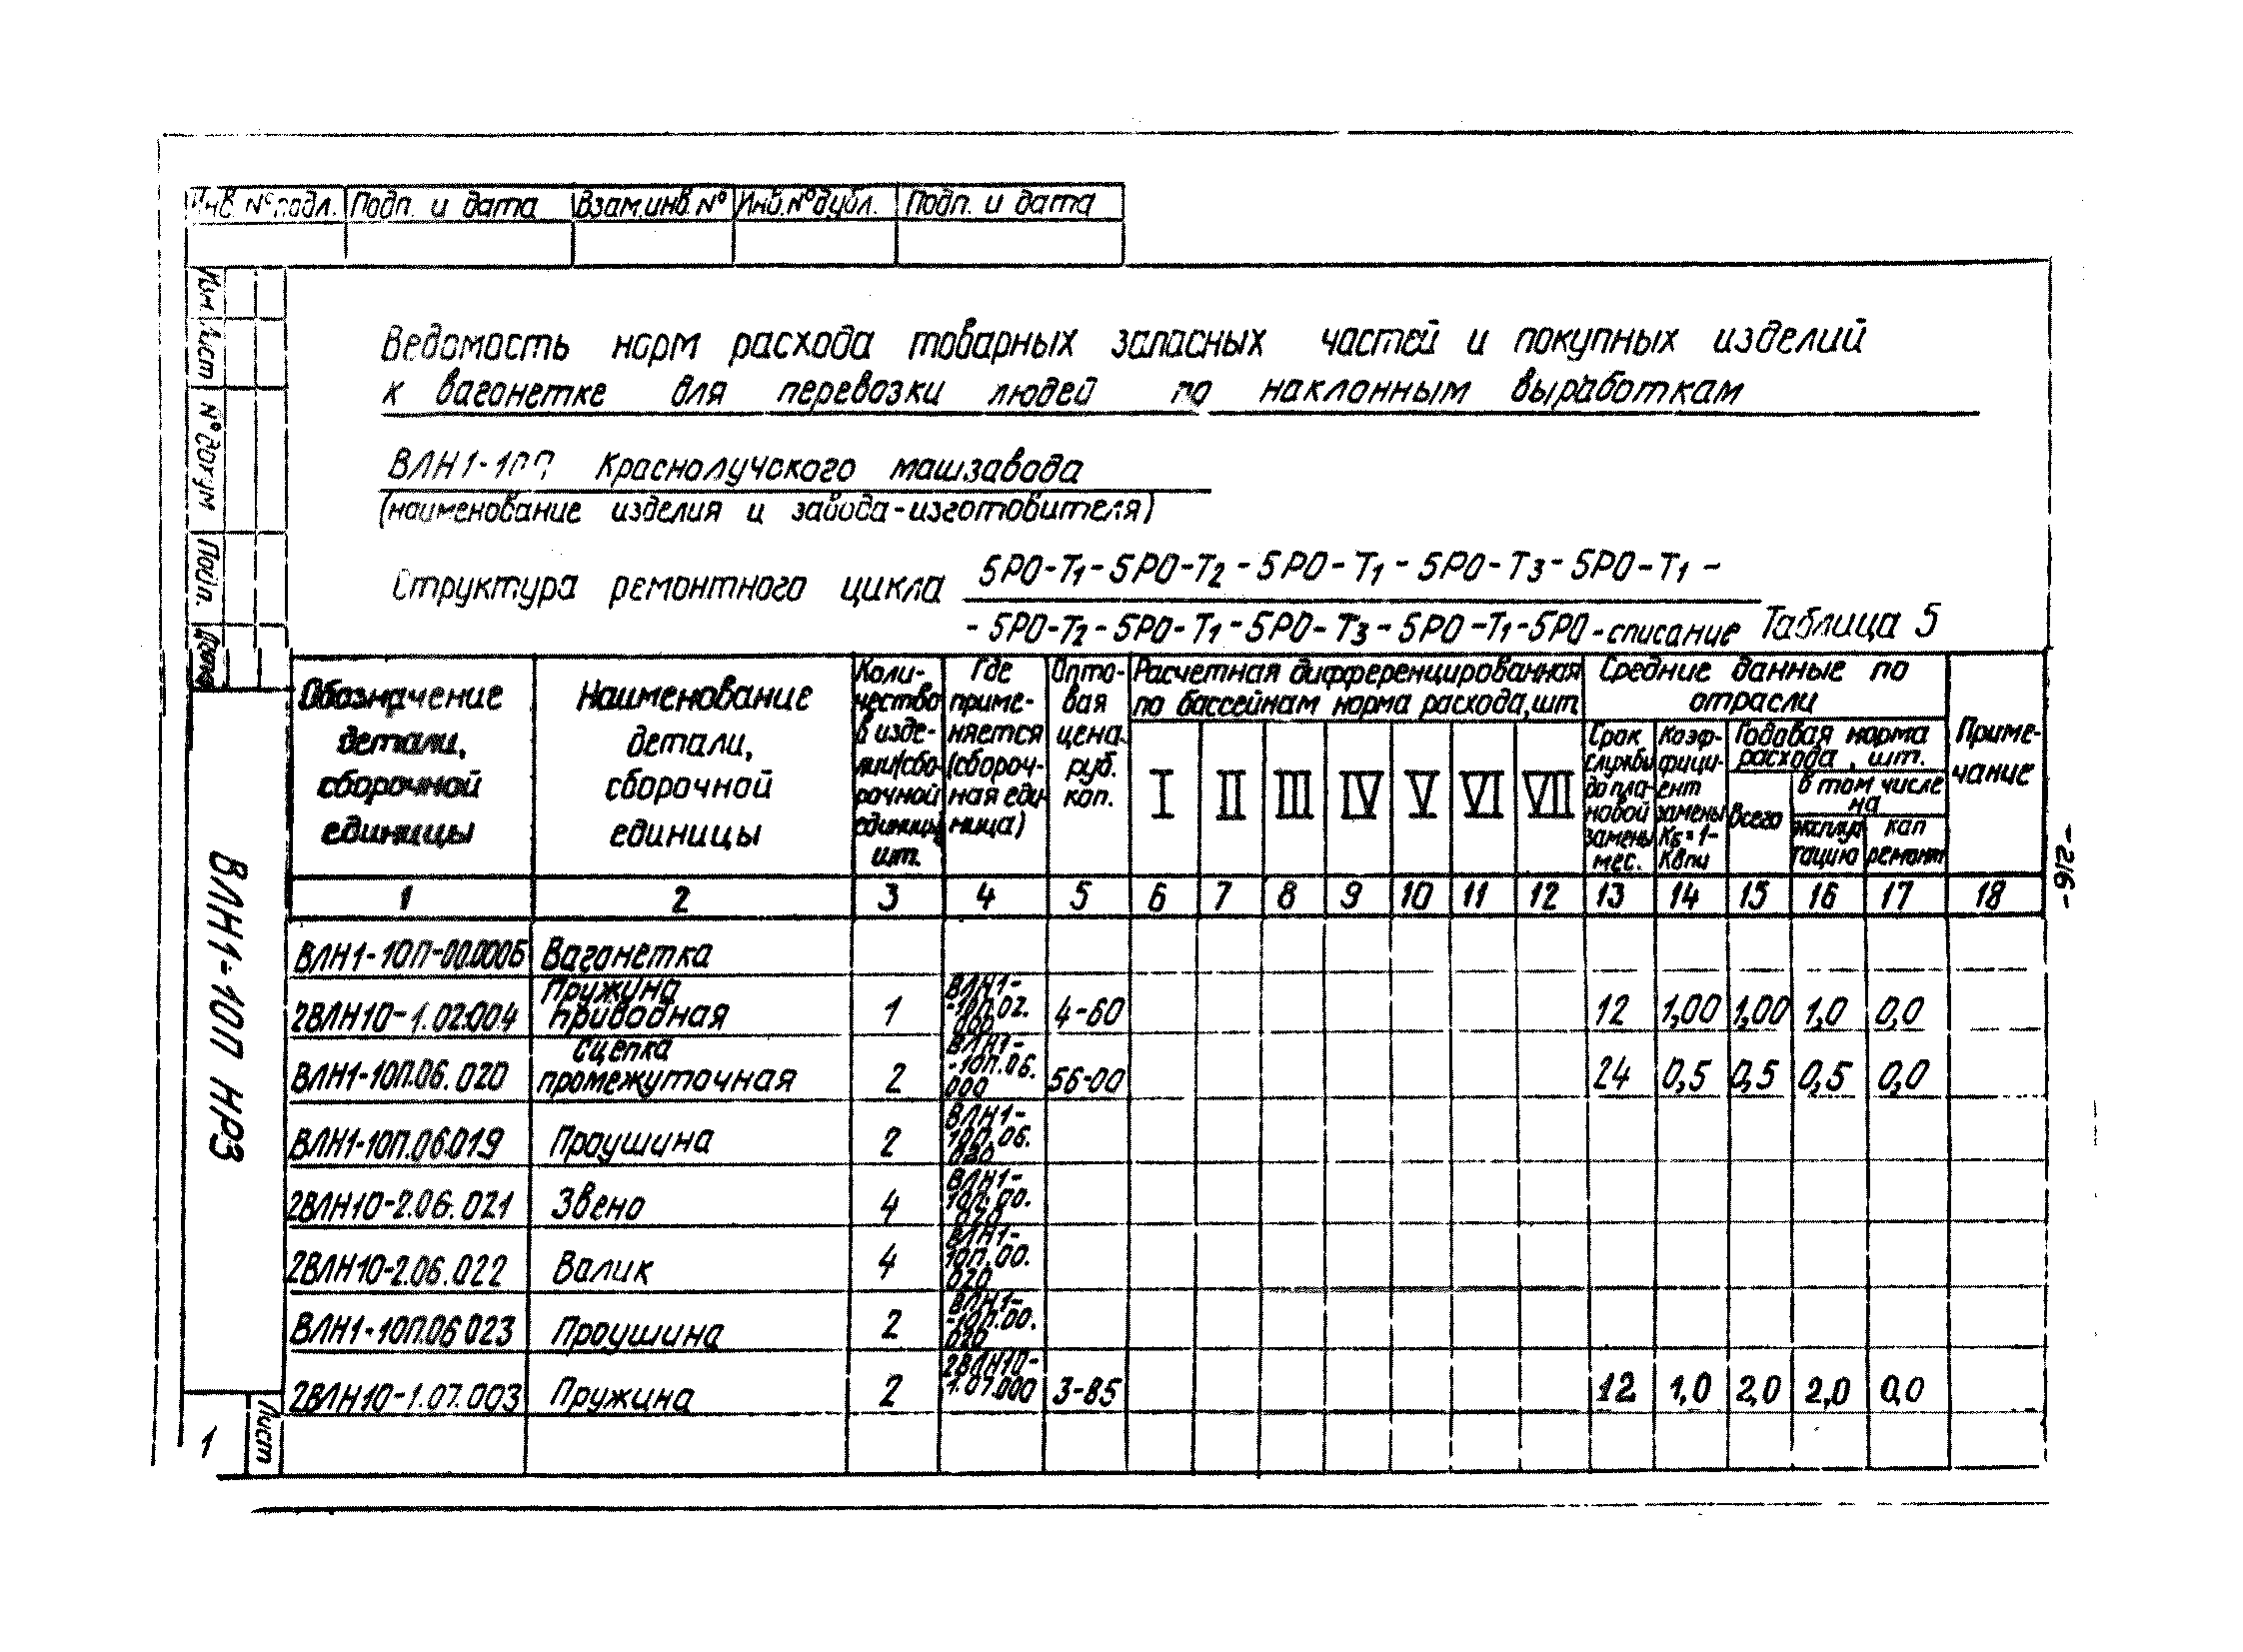 Инв. № подл. Подп. и дата Взам.инв.№ Инв.№ дубл. Подп. и дата
Изм. Лист № докум Подп. Дата
Ведомость норм расхода товарных запасных частей и покупных изделий
к вагонетке для перевозки людей по наклонным выработкам
ВЛН1-10П Краснолучского машзавода
(наименование изделия и завода-изготовителя)
Структура ремонтного цикла 5РО-Т1-5РО-Т2-5РО-Т1-5РО-Т3-5РО-Т1-
-5РО-Т2-5РО-Т1-5РО-Т3-5РО-Т1-5РО-списание Таблица 5
Обозначение
детали,
сборочной
единицы
Наименование
детали,
сборочной
единицы
Коли-
чество
в изде-
лии(сбо-
рочной
единицы
шт.
Где
приме-
няется
(сбороч-
ная еди-
ница)
Опто-
вая
цена.
руб.
коп.
Расчетная дифференцированная
по бассейнам норма расхода,шт
I II III IV V VI VII
Средние данные по
отрасли
Срок
службы
до пла-
новой
замены
мес.
Коэф-
фици-
ент
замены
Кб=1-
Квпи
Годовая норма
расхода, шт.
Всего
в том числе
на
эксплуа
тацию
кап
ремонт
Приме-
чание
1 2 3 4 5 6 7 8 9 10 11 12 13 14 15 16 17 18
ВЛН1-10П-00.000Б Вагонетка
2ВЛН10-1.02.004 Пружина
приводная 1 ВЛН1-
-10П.02.
000 4-60 12 1,00 1,00 1,0 0,0
ВЛН1-10П.06.020 Сцепка
промежуточная 2 ВЛН1-
-10П.06.
000 56-00 24 0,5 0,5 0,5 0,0
ВЛН1-10П.06.019 Проушина 2 ВЛН1-
10П.06.
020
2ВЛН10-2.06.021 Звено 4 ВЛН1-
10П.00.
020
2ВЛН10-2.06.022 Валик 4 ВЛН1-
10П.00.
020
ВЛН1-10П.06 023 Проушина 2 ВЛН1-
-10П.00.
020
2ВЛН10-1.07.003 Пружина 2 2ВЛН10-
1.07.000 3-85 12 1,0 2,0 2,0 0,0
ВЛН1-10П НРЗ
Лист
1
-216-